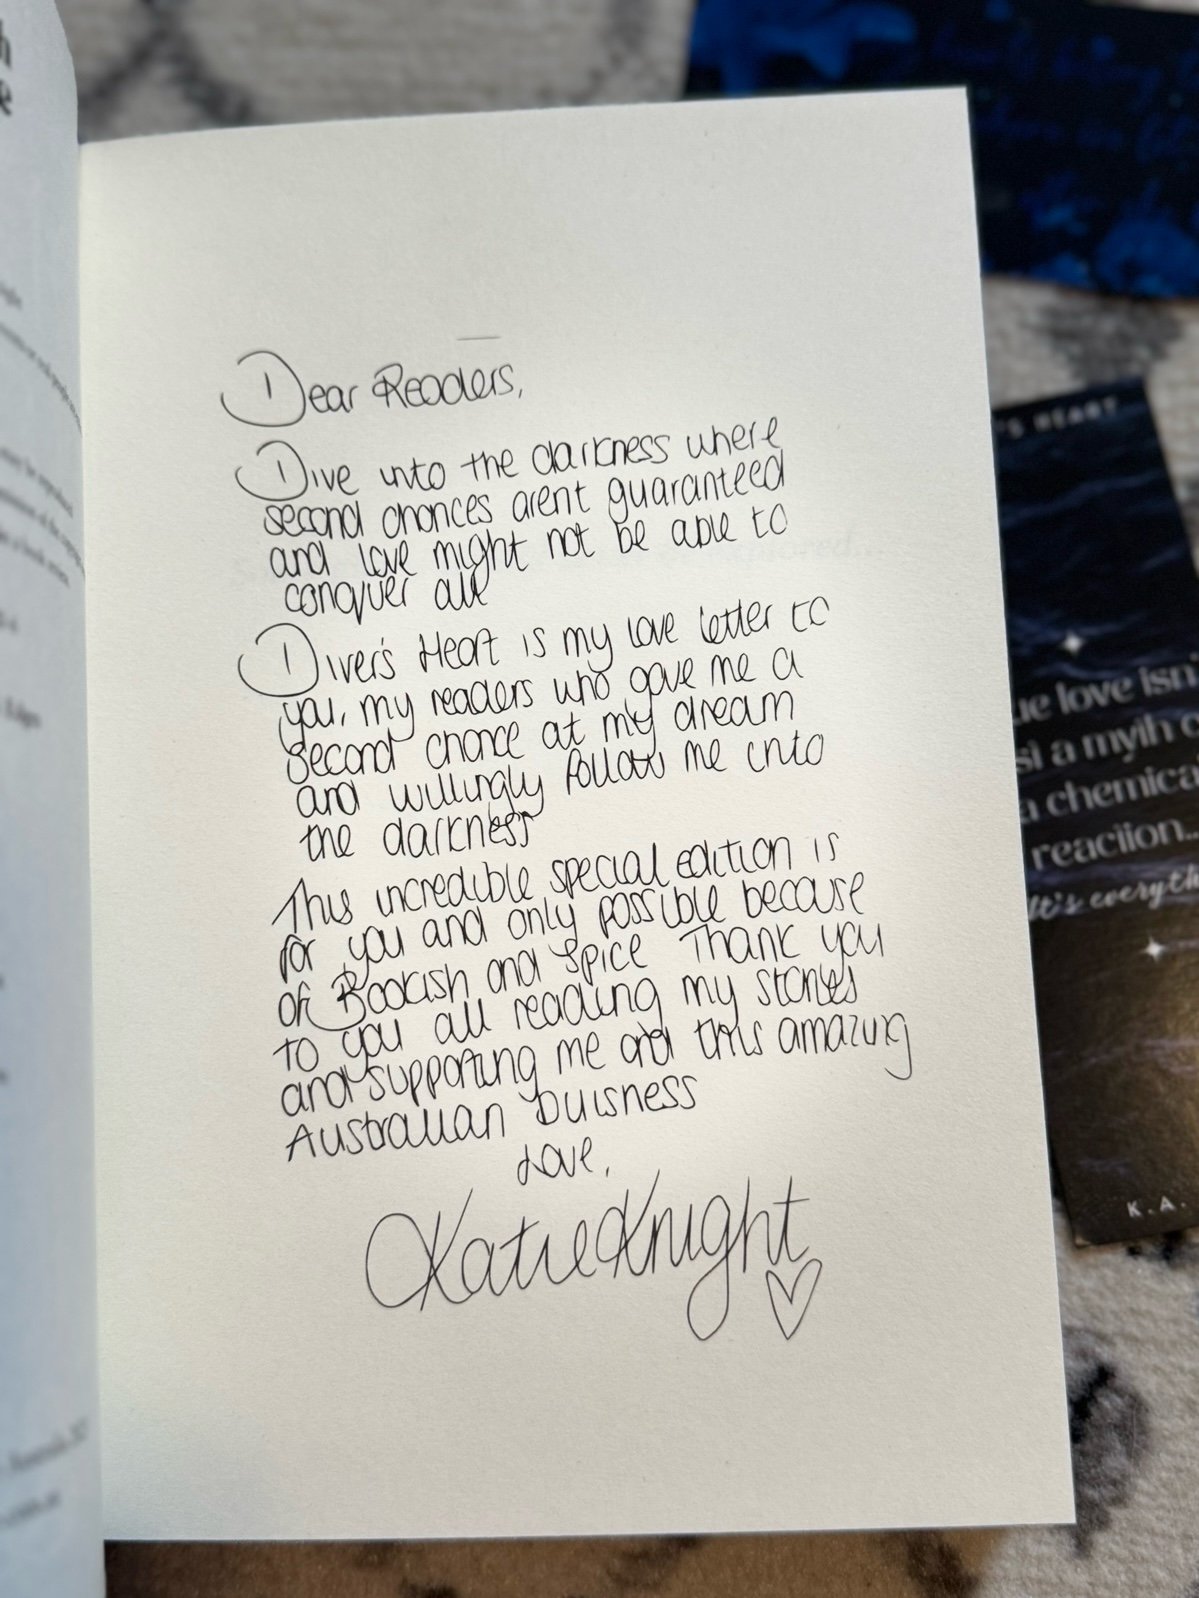 Dear Readers,
Dive into the darkness where
second chances arent guaranteed
and love might not be able to
conquer all
Diver's Heart is my love letter to
you, my readers who gave me a
second chance at my dream
and willingly follow me into
the darkness
This incredible special edition is
for you and only possible because
of Bookish and Spice Thank you
to you all reading my stories
and supporting me and this amazing
Australian buisness
Love,
Katie Knight
'S HEART
ue love isn'
a myth
a chemica
reaction..
It's everyth
K.A.